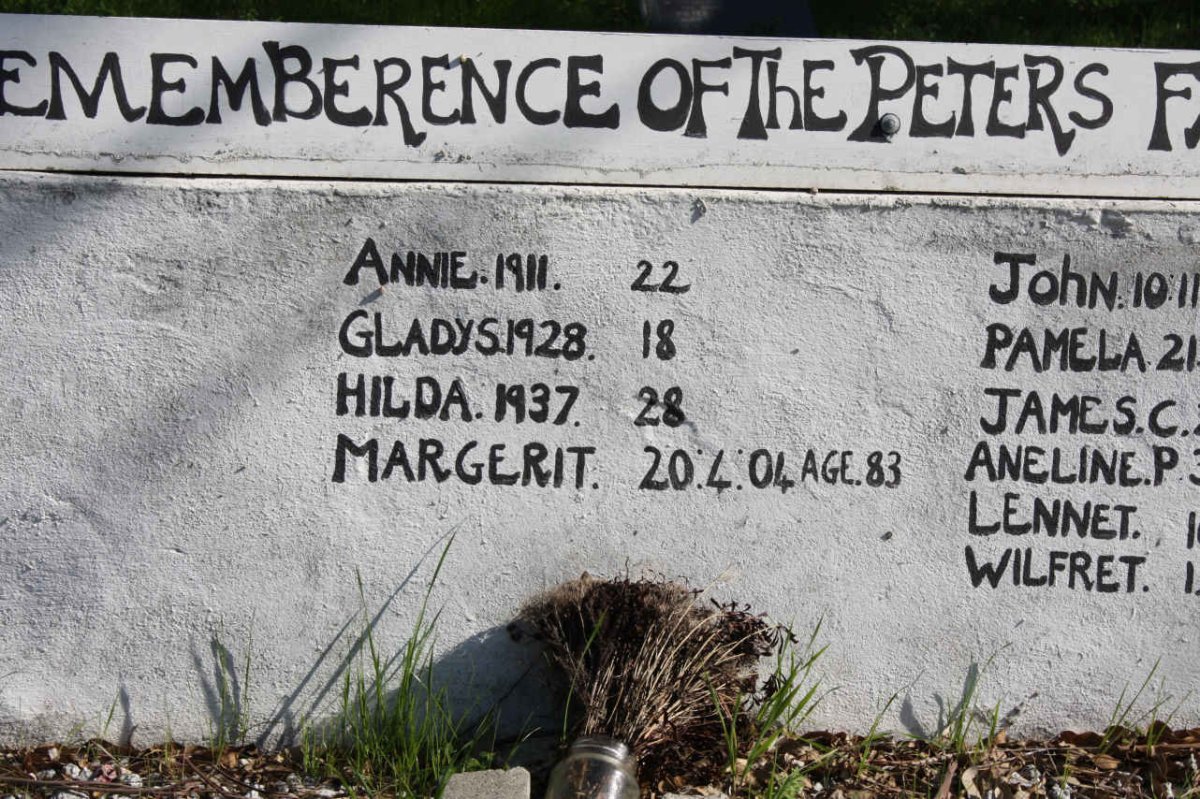 EMEMBERENCE OF THE PETERS FA
ANNIE. 1911. 22
GLADYS. 1928. 18
HILDA. 1937. 28
MARGERIT. 20:4:04 AGE. 83
JOHN. 10:11
PAMELA. 21
JAMES. C.
ANELINE. P.
LENNET.
WILFRET.